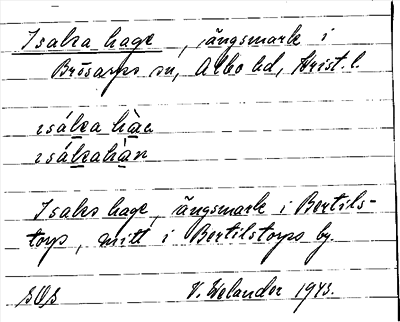 Isaka hage, ängsmark i
Brösarps sn, Albo hd, Krist. l.
isáka hàa
isákahàn
Isaks hage, ängsmark i Bertils-
torp, mitt i Bertilstorps by.
SOS V. Welander 1943.